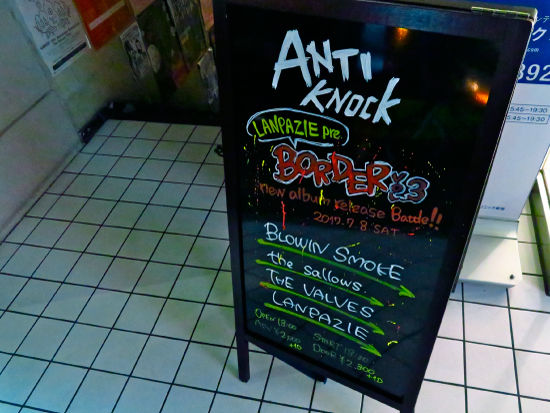 ANTI
KNOCK
LANPAZIE pre.
BORDER
new album release Battle!!
2017.7.8 SAT
BLOWIN SMOKE
the sallows.
THE VALVES
LANPAZIE
OPEN 18:00 START 18:30
ADV ¥2,000 DOOR ¥2,300
+1D +1D
ク
392
5:45~19:30
5:45~19:30